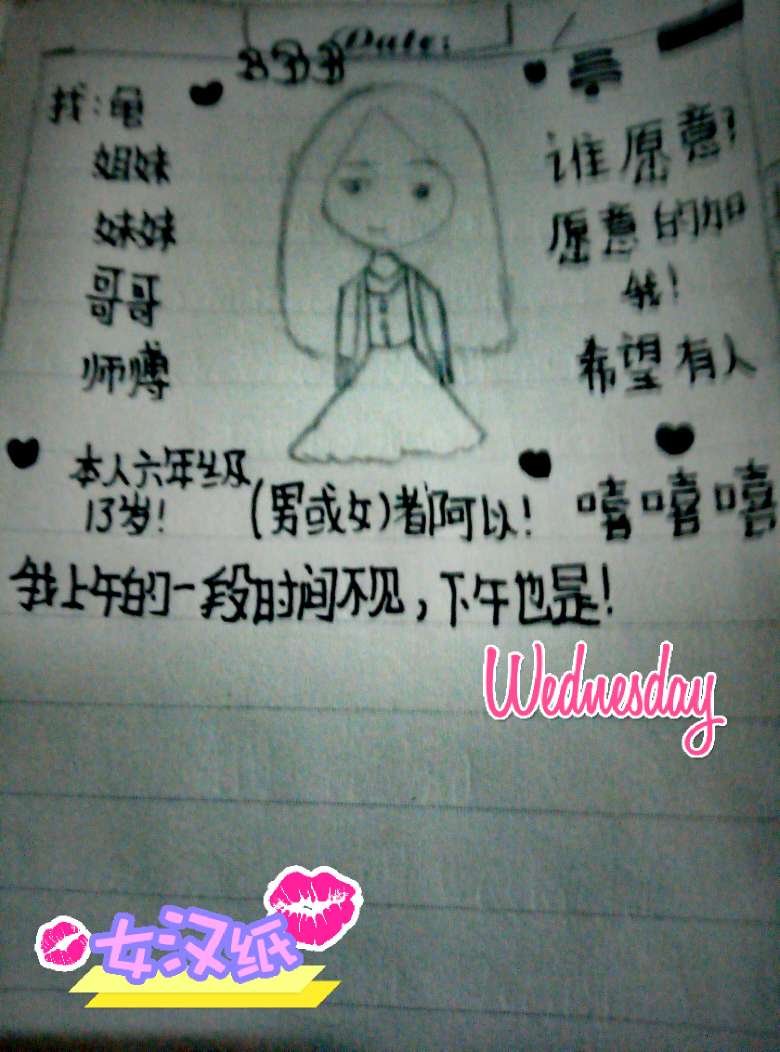 Date:
BBB
找:龟
姐妹
妹妹
哥哥
师傅
谁愿意?
愿意的加
我!
希望有人
本人六年生级
13岁!
(男或女)者阿以!
嘻嘻嘻
我上午的一段时间不见,下午也是!
Wednesday
女汉纸